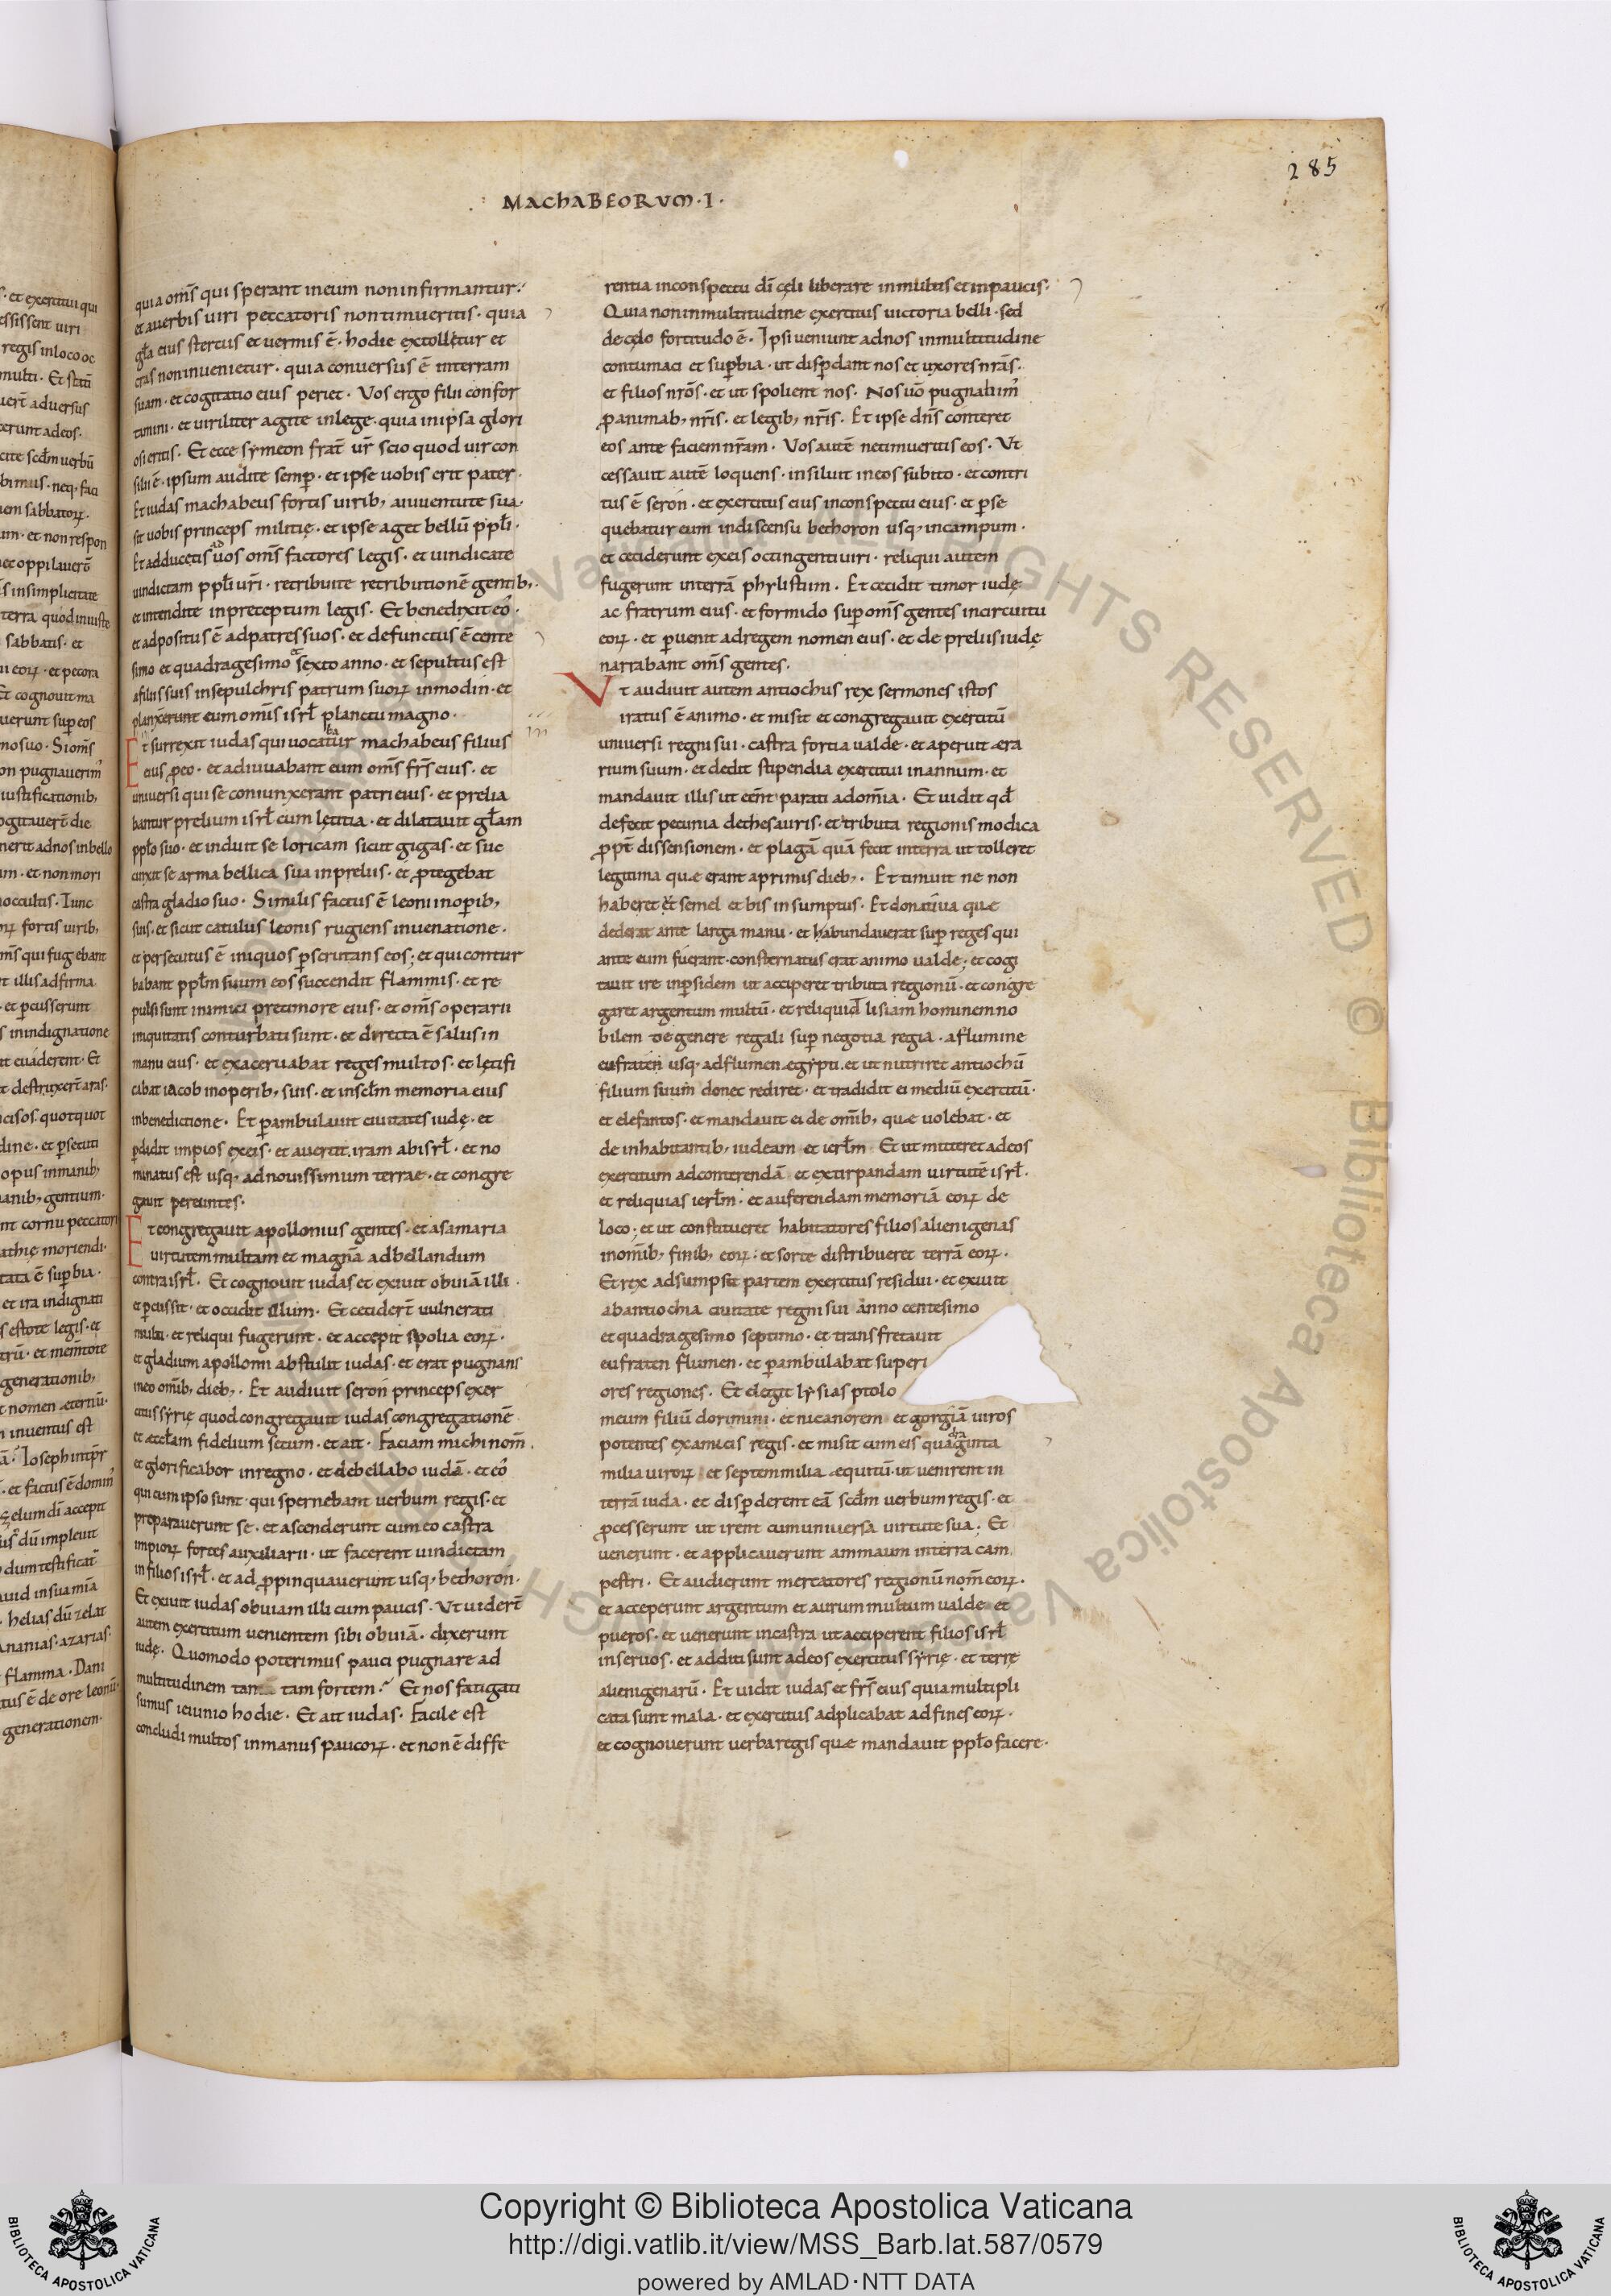 285
MachaBEORVM·I·
quia om̄s qui sperant ineum noninfirmantur.
et auerbis uiri peccatoris nontimueritis· quia
gl̄a eius stercus et uermis ē· hodie extolletur et
cras noninuenietur· quia conuersus ē interram
suam· et cogitatio eius periet· Vos ergo filii confor
tamini· et uiriliter agite inlege· quia inipsa glori
osi eritis· Et ecce symeon frat̄ ur̄ scio quod uir con
silii ē· ipsum audite semp̄· et ipse uobis erit pater·
Et iudas machabeus fortis uirib; aiuuentute sua·
sit uobis princeps militię· et ipse aget bellū ppl̄i·
Et adducetis ad uos om̄s factores legis· et uindicate
uindictam ppl̄i ur̄i· retribuite retributionē gentib;·
et intendite inpreceptum legis· Et benedixit eō·
et adpositus ē adpatres suos· et defunctus ē cente
simo et quadragesimo sexto anno· et sepultus est
afiliis suis insepulchris patrum suoꝝ inmodin· et
planxerunt eum omīs isrl̄ planctu magno·
Et surrexit iudas qui uocabatur machabeus filius
eius ꝓeo· et adiuuabant eum om̄s fr̄s eius· et
uniuersi qui se coniunxerant patri eius· et prelia
bantur prelium isrl̄ cum lętitia· et dilatauit gl̄am
ppl̄o suo· et induit se loricam sicut gigas· et suc
cinxit se arma bellica sua inpreliis· et ꝓtegebat
castra gladio suo· Similis factus ē leoni inop̄ib;
suis· et sicut catulus leonis rugiens inuenatione·
et persecutus ē iniquos ꝑscrutans eos; et qui contur
babant ppl̄m suum eos succendit flammis· et re
pulsi sunt inimici pretimore eius· et om̄s operarii
iniquitatis conturbati sunt· et directa ē salus in
manu eius· et exaceruabat reges multos· et lętifi
cabat iacob inoperib; suis· et insc̄lm memoria eius
inbenedictione· Et ꝑambulauit ciuitates iudę· et
ꝑdidit impios exeis· et auertit iram abisrl̄· et no
minatus est usq; adnouissimum terrae· et congre
gauit pereuntes·
Et congregauit apollonius gentes· et asamaria
uirtutem multam et magnā adbellandum
contra isrl̄· Et cognouit iudas et exiuit obuiā illi·
et ꝑcussit· et occidit illum· Et cecider̄t uulnerati
multi· et reliqui fugerunt· et accepit spolia eoꝝ·
et gladium apollonii abstulit iudas· et erat pugnans
ineo omīb; dieb;· Et audiuit seron princeps exer
citus syrię quod congregauit iudas congregationē
et aeccl̄am fidelium secum· et ait· Faciam michi nom̄·
et glorificabor inregno· et debellabo iudā· et eō
qui cum ipso sunt· qui spernebant uerbum regis· et
preparauerunt se· et ascenderunt cum eo castra
impioꝝ fortes auxiliarii· ut facerent uindictam
in filios isrl̄· et ad ꝓpinquauerunt usq; bethoron·
Et exiuit iudas obuiam illi cum paucis· Vt uider̄t
autem exercitum uenientem sibi obuiā· dixerunt
iudę· Quomodo poterimus pauci pugnare ad
multitudinem tam tam fortem? Et nos fatigati
sumus ieiunio hodie· Et ait iudas· Facile est
concludi multos inmanus paucoꝝ· et non ē diffe
rentia inconspectu dī cęli liberare inmultis et inpaucis·
Quia noninmultitudine exercitus uictoria belli· sed
decęlo fortitudo ē· Ipsi ueniunt adnos inmultitudine
contumaci et supꝑbia· ut disꝑdant nos et uxores nr̄as·
et filios nr̄os· et ut spolient nos· Nos uō pugnabim̄
ꝓanimab; nr̄is· et legib; nr̄is· Et ipse dn̄s conteret
eos ante faciem nr̄am· Vos autē netimueritis eos· Vt
cessauit autē loquens· insiluit in eos subito· et contri
tus ē seron· et exercitus eius inconspectu eius· et ꝑse
quebatur eum indiscensu bethoron usq; incampum·
et ceciderunt exeis octingenti uiri· reliqui autem
fugerunt interrā phylistiim· Et cecidit timor iudę
ac fratrum eius· et formido sup om̄s gentes incircuitu
eoꝝ· et ꝑuenit adregem nomen eius· et de preliis iudę
narrabant om̄s gentes·
Vt audiuit autem antiochus rex sermones istos
iratus ē animo· et misit et congregauit exercitū
uniuersi regni sui· castra fortia ualde· et aperuit æra
rium suum· et dedit stipendia exercitui inannum· et
mandauit illis ut eēnt parati adom̄ia· Et uidit qd̄
defecit pecunia dethesauris· et tributa regionis modica
ꝓpt̄ dissensionem· et plagā quā fecit interra ut tolleret
legitima quæ erant aprimis dieb;· Et timuit ne non
haberet ut semel et bis in sumptus· Et donatiua quæ
dederat ante larga manu· et habundauerat sup reges qui
ante eum fuerant· consternatus erat animo ualde; et cogi
tauit ire inꝑsidem ut acciperet tributa regionū· et congre
garet argentum multū· et reliquid lisiam hominem no
bilem de genere regali sup negotia regia· aflumine
eufraten usq; adflumen ægypti· et ut nutriret antiochū
filium suum donec rediret· et tradidit ei mediū exercitū·
et elefantos· et mandauit ei de omīb; quæ uolebat· et
de inhabitantib; iudeam et ierl̄m· Et ut mitteret adeos
exercitum adconterendā et extirpandam uirtutē isrl̄·
et reliquias ierl̄m· et auferendam memoriā eoꝝ de
loco· et ut constitueret habitatores filios alienigenas
inomīb; finib; eoꝝ· et sorte distribueret terrā eoꝝ·
Et rex adsumpsit partem exercitus residui· et exiuit
abantiochia ciuitate regni sui anno centesimo
et quadragesimo septimo· et transfretauit
eufraten flumen· et ꝑambulabat superi
ores regiones· Et elegit lysias ptolo
meum filiū dorimini· et nicanorem et gorgiā uiros
potentes examicis regis· et misit cum eis quadraginta
milia uiroꝝ et septem milia æquitū· ut uenirent in
terrā iuda· et disꝑderent eā scd̄m uerbum regis· et
ꝓcesserunt ut irent cum uniuersa uirtute sua· Et
uenerunt· et applicauerunt ammaum interra cam
pestri· Et audierunt mercatores regionū nom̄ eoꝝ·
et acceperunt argentum et aurum multum ualde et
pueros· et uenerunt incastra ut acciperent filios isrl̄
inseruos· et additi sunt adeos exercitus syrię· et terrę
alienigenarū· Et uidit iudas et fr̄s eius quia multipli
cata sunt mala· et exercitus adplicabat ad fines eoꝝ·
et cognouerunt uerba regis quæ mandauit ppl̄o facere·
Copyright © Biblioteca Apostolica Vaticana
http://digi.vatlib.it/view/MSS_Barb.lat.587/0579
powered by AMLAD·NTT DATA